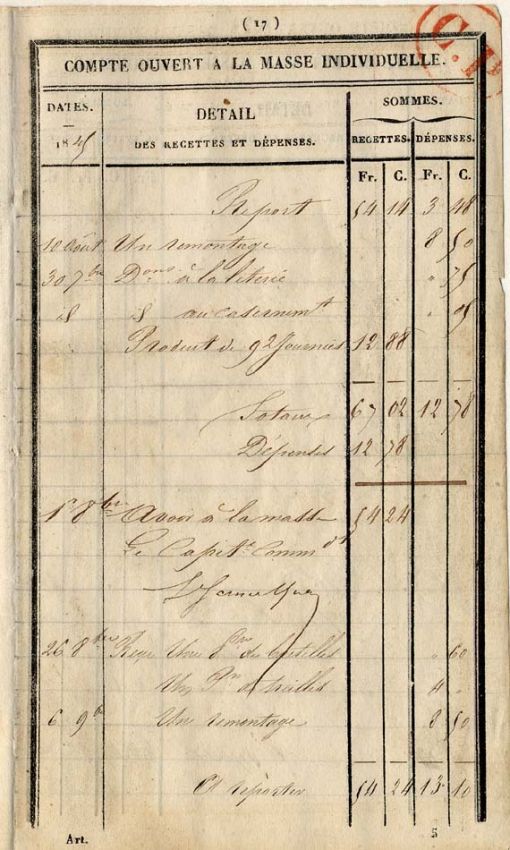 ( 17 )
COMPTE OUVERT A LA MASSE INDIVIDUELLE.
DATES. DÉTAIL SOMMES.
1845 DES RECETTES ET DÉPENSES. RECETTES. DÉPENSES.
Fr. C. Fr. C.
Report 54 14 3 48
10 Août Un remontage 8 50
30 7bre Dons à la literie " 75
d d au casernemt " 05
Produit de 92 Journées 12 88
Totaux 67 02 12 78
Dépenses 12 78
1r 8bre Avoir à la masse 54 24
Le Capitne Commdt
26 8bre Reçu Une Pre de " 60
Un Pn de 4 "
6 9bre Une remontage 8 50
A reporter 54 24 13 10
Art. 5